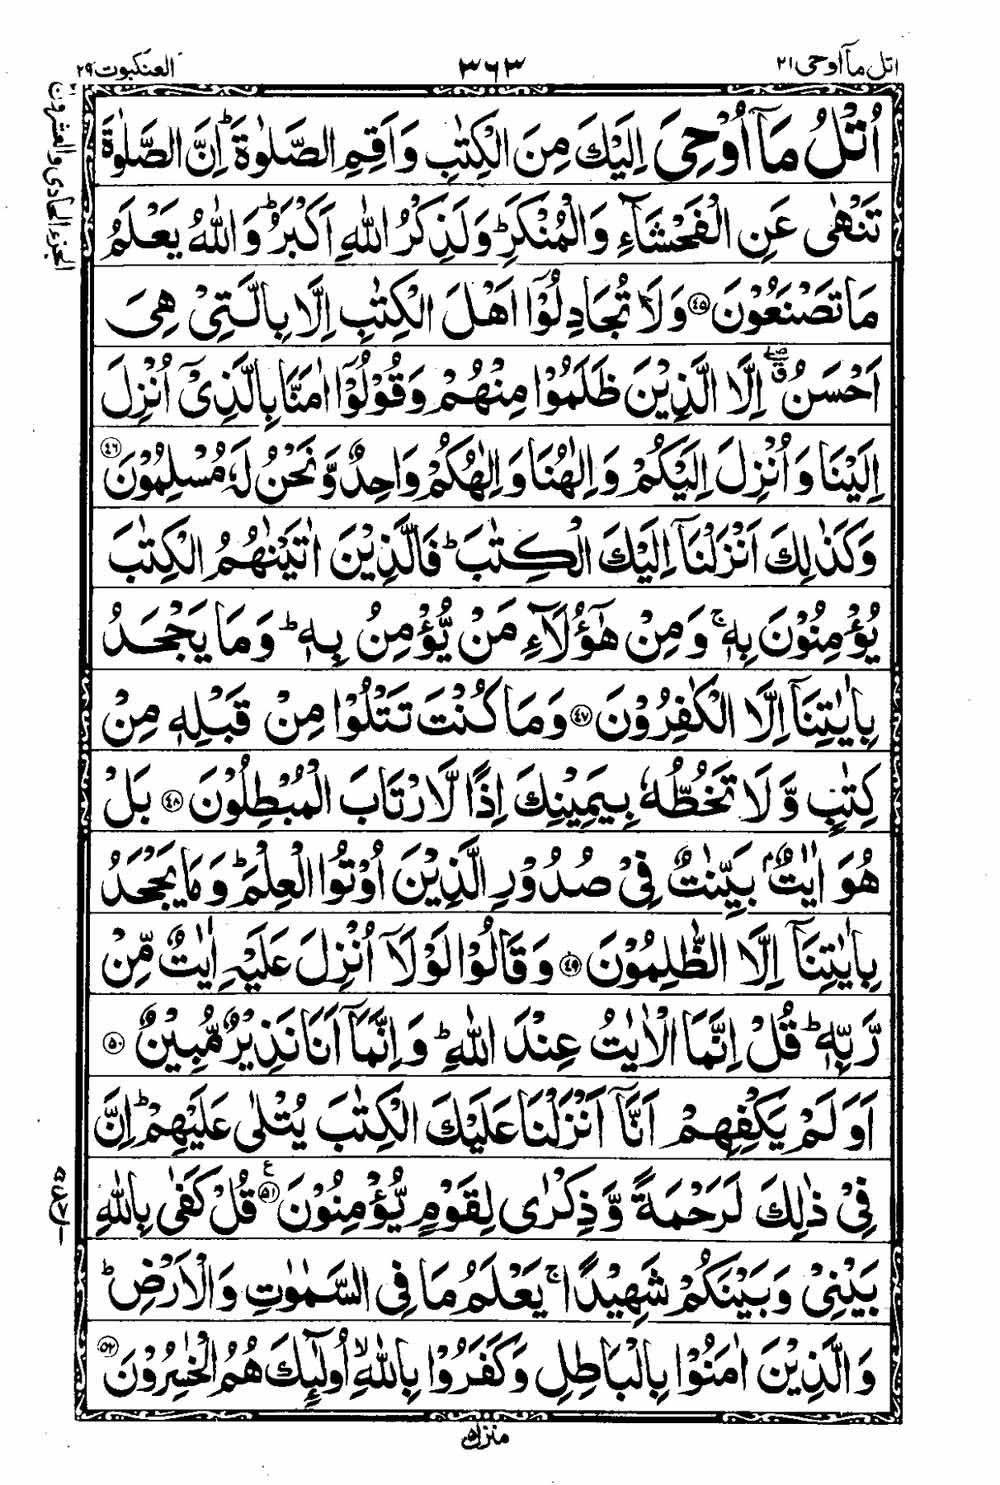 اتل مآ اوحی ۲۱
۳۶۳
العنكبوت ۲۹
الجزء الحادی والعشرون
اُتْلُ مَاۤ اُوْحِیَ اِلَیْكَ مِنَ الْكِتٰبِ وَاَقِمِ الصَّلٰوةَ ؕ اِنَّ الصَّلٰوةَ
تَنْهٰی عَنِ الْفَحْشَآءِ وَالْمُنْكَرِ ؕ وَلَذِكْرُ اللّٰهِ اَكْبَرُ ؕ وَاللّٰهُ یَعْلَمُ
مَا تَصْنَعُوْنَ ﴿۴۵﴾ وَلَا تُجَادِلُوْۤا اَهْلَ الْكِتٰبِ اِلَّا بِالَّتِیْ هِیَ
اَحْسَنُ ۖق اِلَّا الَّذِیْنَ ظَلَمُوْا مِنْهُمْ وَقُوْلُوْۤا اٰمَنَّا بِالَّذِیْۤ اُنْزِلَ
اِلَیْنَا وَاُنْزِلَ اِلَیْكُمْ وَاِلٰهُنَا وَاِلٰهُكُمْ وَاحِدٌ وَّنَحْنُ لَهٗ مُسْلِمُوْنَ ﴿۴۶﴾
وَكَذٰلِكَ اَنْزَلْنَاۤ اِلَیْكَ الْكِتٰبَ ؕ فَالَّذِیْنَ اٰتَیْنٰهُمُ الْكِتٰبَ
یُؤْمِنُوْنَ بِهٖ ۚ وَمِنْ هٰۤؤُلَآءِ مَنْ یُّؤْمِنُ بِهٖ ؕ وَمَا یَجْحَدُ
بِاٰیٰتِنَاۤ اِلَّا الْكٰفِرُوْنَ ﴿۴۷﴾ وَمَا كُنْتَ تَتْلُوْا مِنْ قَبْلِهٖ مِنْ
كِتٰبٍ وَّلَا تَخُطُّهٗ بِیَمِیْنِكَ اِذًا لَّارْتَابَ الْمُبْطِلُوْنَ ﴿۴۸﴾ بَلْ
هُوَ اٰیٰتٌۢ بَیِّنٰتٌ فِیْ صُدُوْرِ الَّذِیْنَ اُوْتُوا الْعِلْمَ ؕ وَمَا یَجْحَدُ
بِاٰیٰتِنَاۤ اِلَّا الظّٰلِمُوْنَ ﴿۴۹﴾ وَقَالُوْا لَوْلَاۤ اُنْزِلَ عَلَیْهِ اٰیٰتٌ مِّنْ
رَّبِّهٖ ؕ قُلْ اِنَّمَا الْاٰیٰتُ عِنْدَ اللّٰهِ ؕ وَاِنَّمَاۤ اَنَا نَذِیْرٌ مُّبِیْنٌ ﴿۵۰﴾
اَوَلَمْ یَكْفِهِمْ اَنَّاۤ اَنْزَلْنَا عَلَیْكَ الْكِتٰبَ یُتْلٰی عَلَیْهِمْ ؕ اِنَّ
فِیْ ذٰلِكَ لَرَحْمَةً وَّذِكْرٰی لِقَوْمٍ یُّؤْمِنُوْنَ ﴿۵۱﴾ ع قُلْ كَفٰی بِاللّٰهِ
بَیْنِیْ وَبَیْنَكُمْ شَهِیْدًا ۚ یَعْلَمُ مَا فِی السَّمٰوٰتِ وَالْاَرْضِ ؕ
وَالَّذِیْنَ اٰمَنُوْا بِالْبَاطِلِ وَكَفَرُوْا بِاللّٰهِ ۙ اُولٰٓئِكَ هُمُ الْخٰسِرُوْنَ ﴿۵۲﴾
منزل ۵